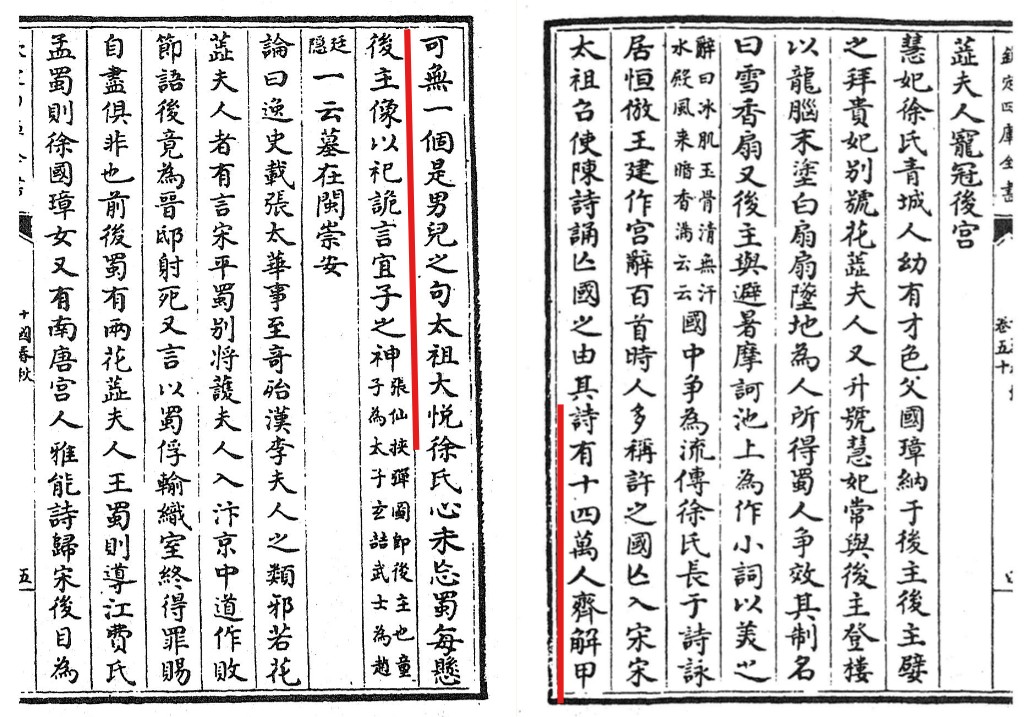 欽定四庫全書
卷五十
蕋夫人寵冠後宫
慧妃徐氏青城人幼有才色父國璋納于後主後主嬖
之拜貴妃別號花蕋夫人又升號慧妃常與後主登樓
以龍腦末塗白扇扇墜地為人所得蜀人争效其制名
曰雪香扇又後主與避暑摩訶池上為作小詞以美之
辭曰冰肌玉骨清無汗
水殿風来暗香滿云云
國中争為流傳徐氏長于詩詠
居恒倣王建作宫辭百首時人多稱許之國亾入宋宋
太祖召使陳詩誦亾國之由其詩有十四萬人齊解甲
可無一個是男兒之句太祖大悦徐氏心未忘蜀每懸
後主像以祀詭言宜子之神
張仙挾彈圖即後主也童
子為太子玄喆武士為趙
廷
隠
一云墓在閩崇安
論曰逸史載張太華事至哥殆漢李夫人之類邪若花
蕋夫人者有言宋平蜀别將護夫人入汴京中道作敗
節語後竟為晉邸射死又言以蜀俘輸織室終得罪賜
自盡俱非也前後蜀有兩花蕋夫人王蜀則導江費氏
孟蜀則徐國璋女又有南唐宫人雅能詩歸宋後目為
十國春秋
五